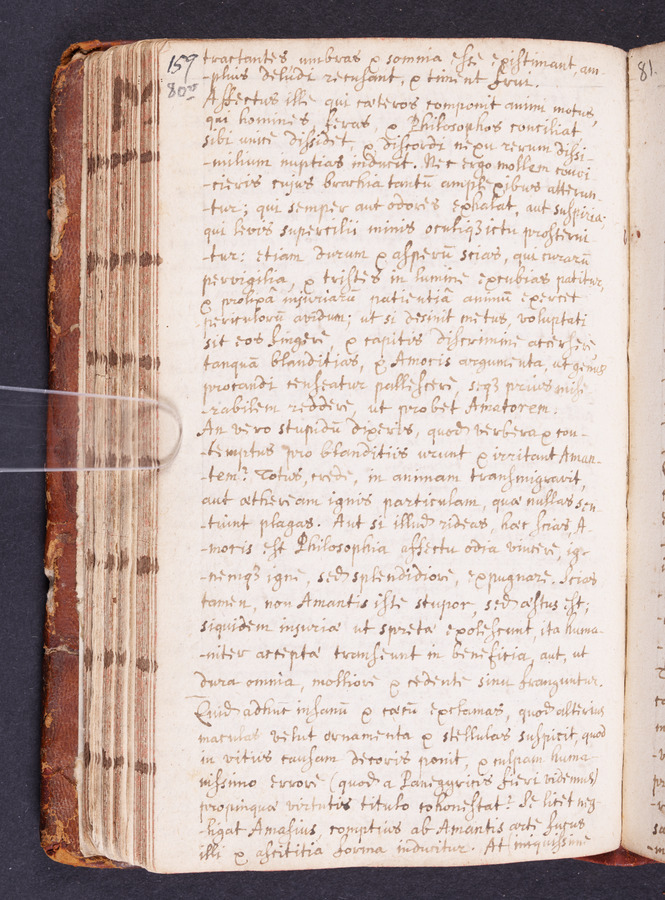 159
80v
tractantes umbras & somnia esse existimant, am-
-plius deludi recusant, & timent frui.
Affectus ille qui cæteros componit animi motus,
qui homines, feras, & Philosophos conciliat
sibi unice dissidet, & discordi nexu rerum dissi-
-milium nuptias inducit. Nec ergo mollem
cujus brachia tantū amplexibus
-tur; qui semper aut odores exhalat, aut suspiria;
qui levis supercilii minis oculiq3 ictu prosterni-
-tur: etiam durum & asperū scias, qui curarū
pervigilia, & tristes in lumine excubias patitur,
& prolixa injuriarū patientiā animū exercet
periculorū avidum; ut si desinit metus, voluptati
sit eos fingere, & capitis discrimine
tanquā blanditias, & Amoris argumenta, ut genus
procandi censeatur pallescere, seq3 prius mise-
-rabilem reddere, ut probet Amatorem.
An vero stupidū dixeris, quod verbera & con-
-temptus pro blanditiis urunt & irritant Aman-
-tem? Totus, crede, in animam transmigravit,
aut ætheream ignis particulam, quæ nullas sen-
-tiunt plagas. Aut si illud rideas, hoc scias, A-
-moris est Philosophia affectu odia vincere, ig-
-nemq3 igne, sed splendidiore, expugnare. Scias
tamen, non Amantis iste stupor, sed æstus est;
siquidem injuriæ ut spretæ exolescunt, ita huma-
-niter acceptæ transeunt in beneficia, aut, ut
dura omnia, molliore & cedente sinu franguntur.
Quid adhuc insanū & cæcū exclamas, quod alterius
maculas velut ornamenta & stellulas suspicit, quod
in vitiis causam decoris ponit, & culpam huma-
nissimo errore (quod a Panegyricis fieri videmus)
propinquæ virtutis titulo cohonestat? Se licet neg-
-ligat Amasius, comptius ab Amantis arte fucus
illi & ascititia forma inducitur. At iniquissime
81.